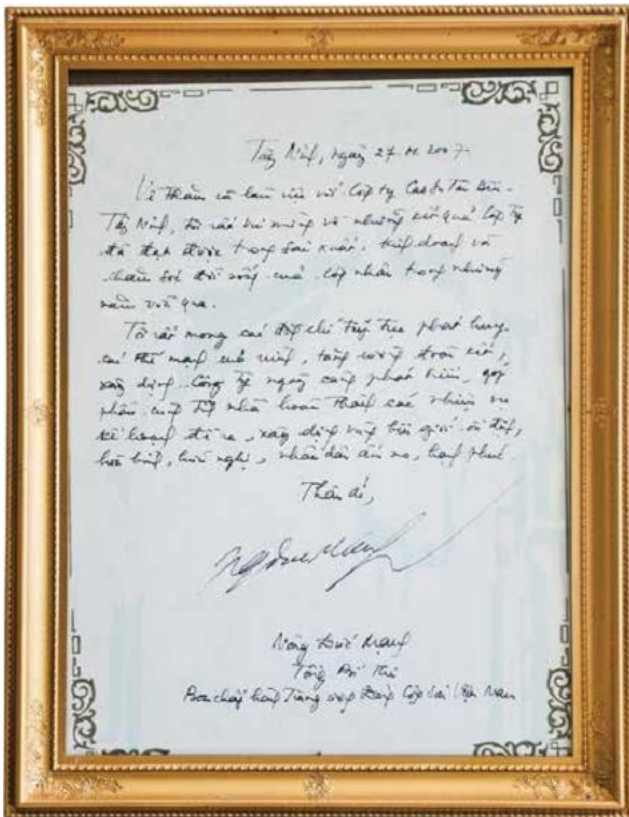 Tây Ninh, ngày 27.11.2007
Về thăm và làm việc với Công ty Cao Su Tân Biên -
Tây Ninh, tôi rất vui mừng về những kết quả Công ty
đã đạt được trong sản xuất, kinh doanh và
chăm sóc đời sống của công nhân trong những
năm vừa qua.
Tôi rất mong các đồng chí tiếp tục phát huy
các thế mạnh của mình, tăng cường đoàn kết,
xây dựng Công ty ngày càng phát triển, góp
phần cùng tỉnh nhà hoàn thành các nhiệm vụ
kế hoạch đề ra, xây dựng vùng biên giới ổn định,
hòa bình, hữu nghị, nhân dân ấm no, hạnh phúc.
Thân ái,
Nông Đức Mạnh
Tổng Bí Thư
Ban chấp hành Trung ương Đảng Cộng sản Việt Nam